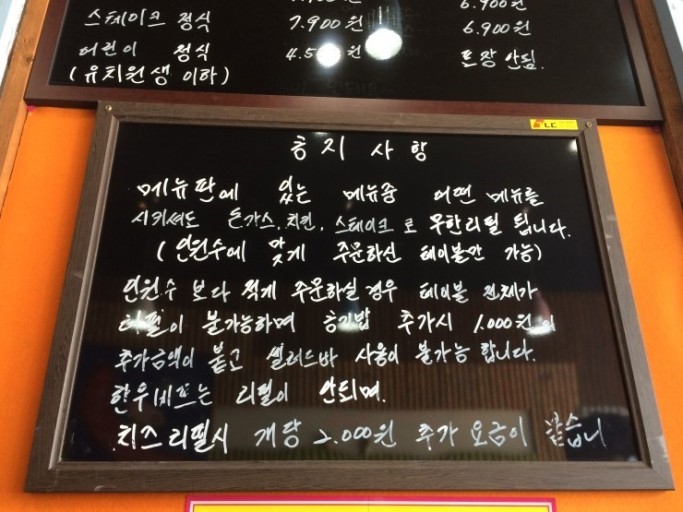 6.900원
스테이크 정식 7.900원 6.900원
어린이 정식 포장 안됨.
(유치원생 이하)
LC
공지사항
메뉴판에 있는 메뉴중 어떤 메뉴를
시키셔도 돈가스, 치킨, 스테이크로 무한리필 됩니다.
(인원수에 맞게 주문하신 테이블만 가능)
인원수 보다 적게 주문하실 경우 테이블 전체가
리필이 불가능하며 공기밥 추가시 1,000원의
추가금액이 붙고 샐러드바 사용이 불가능 합니다.
한우비프는 리필이 안되며,
치즈리필시 개당 2.000원 추가 요금이 붙습니